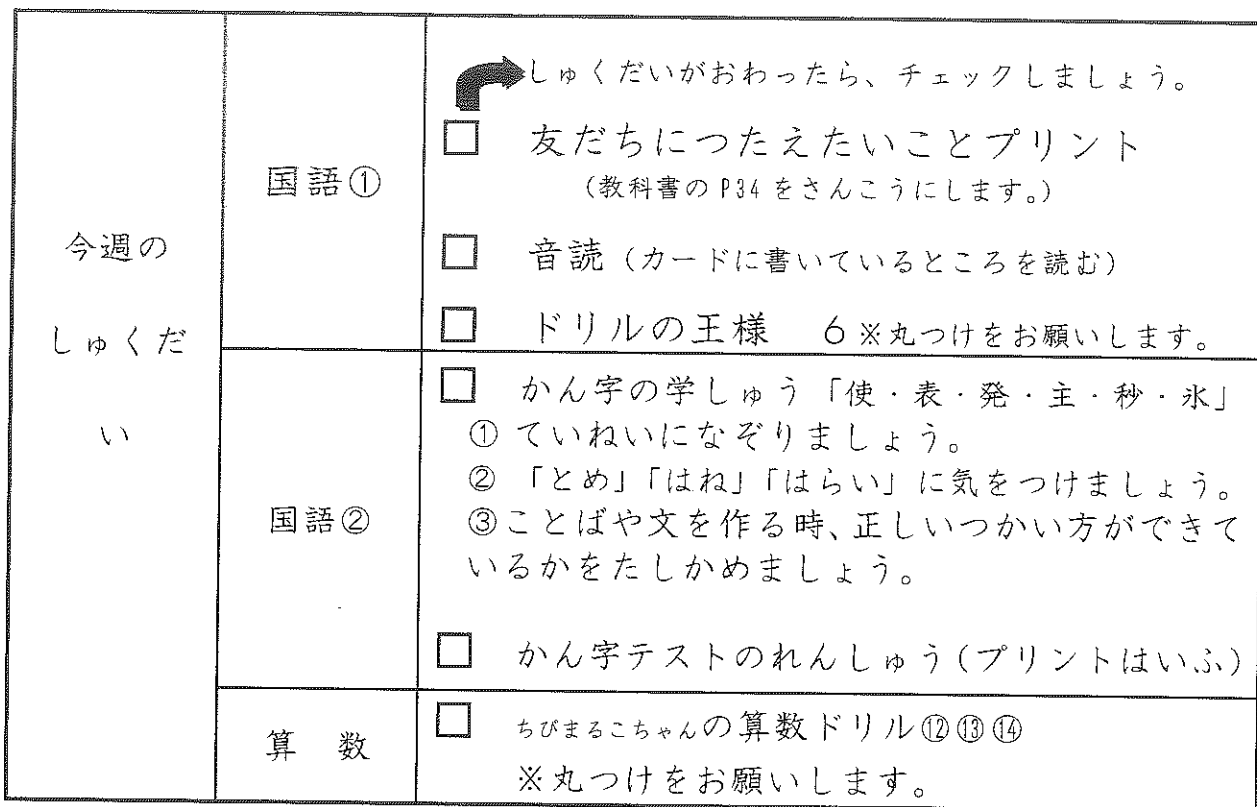 今週の
しゅくだ
い
国語①
しゅくだいがおわったら、チェックしましょう。
□ 友だちにつたえたいことプリント
(教科書のP34をさんこうにします。)
□ 音読(カードに書いているところを読む)
□ ドリルの王様 6※丸つけをお願いします。
国語②
□ かん字の学しゅう「使・表・発・主・秒・氷」
① ていねいになぞりましょう。
② 「とめ」「はね」「はらい」に気をつけましょう。
③ことばや文を作る時、正しいつかい方ができて
いるかをたしかめましょう。
□ かん字テストのれんしゅう(プリントはいふ)
算 数
□ ちびまるこちゃんの算数ドリル⑫⑬⑭
※丸つけをお願いします。